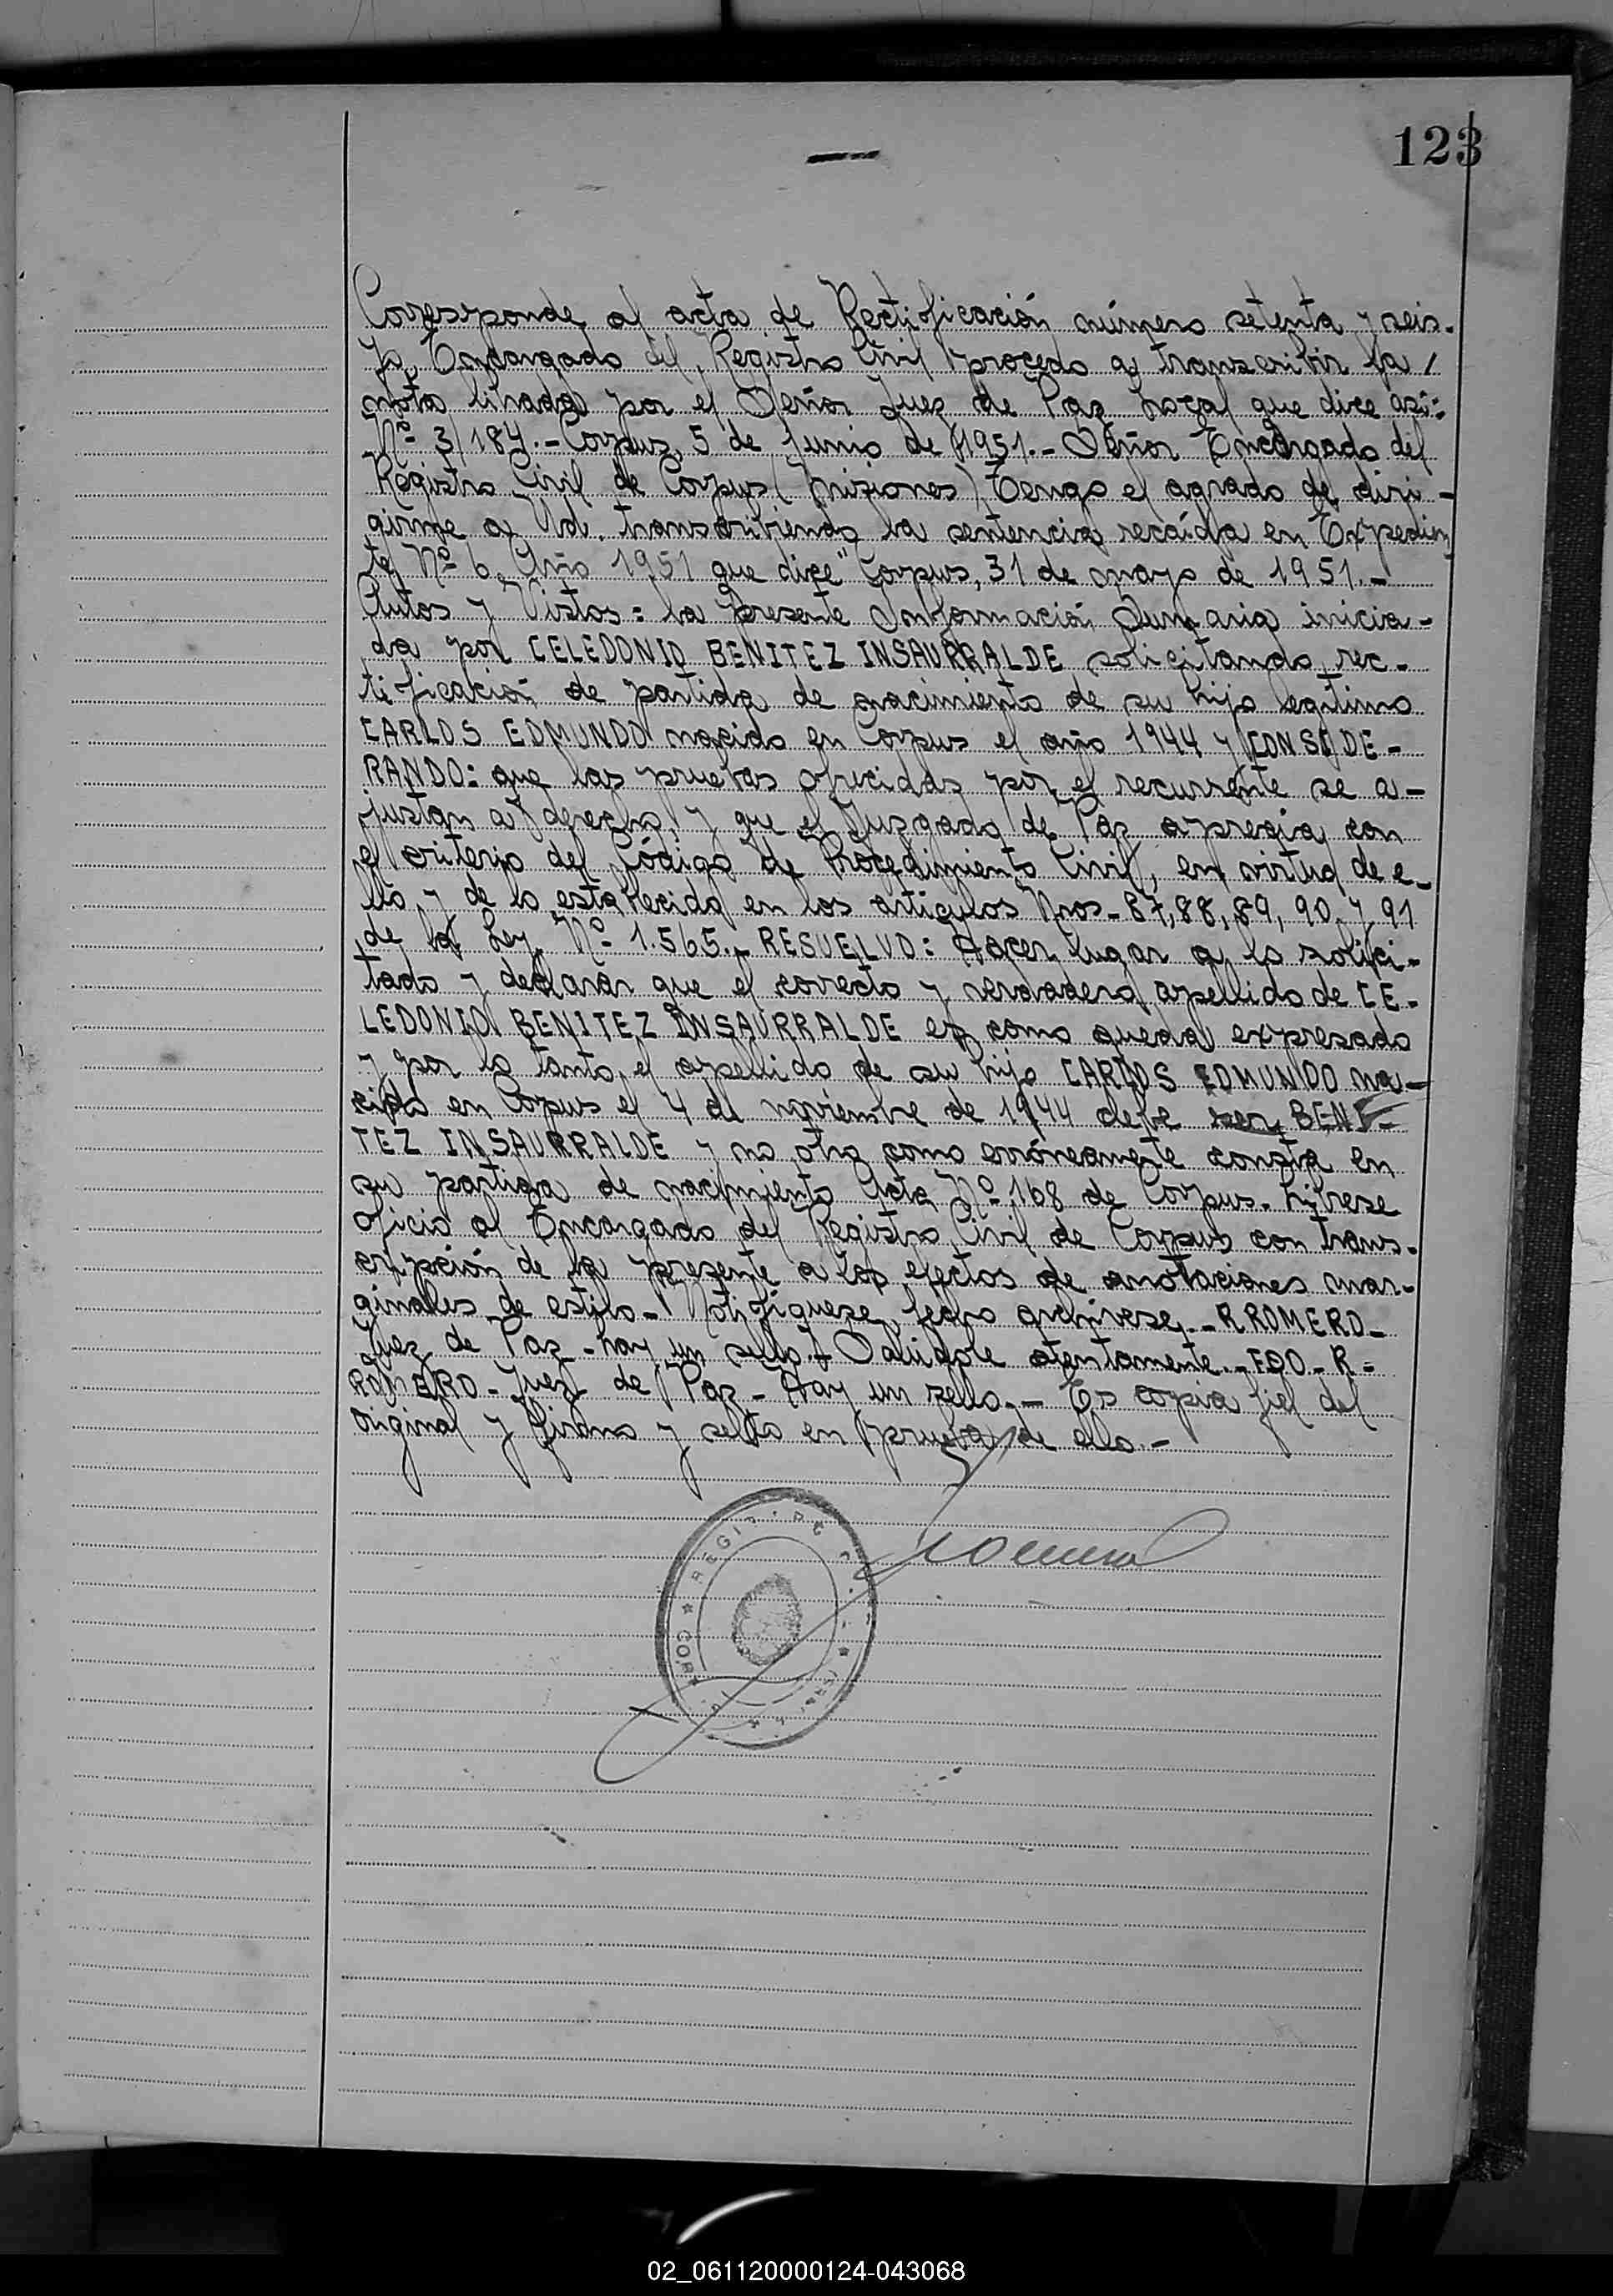 123
Corresponde al acta de Rectificación número setenta y seis.
Yo, Encargado del Registro Civil procedo a transcribir la /
nota librada por el Señor Juez de Paz local que dice así:
Nº 3/184.- Corpus, 5 de Junio de 1951.- Señor Encargado del
Registro Civil de Corpus (Misiones) Tengo el agrado de diri-
girme a Ud. transcribiendo la sentencia recaída en Expedien
te Nº 6 Año 1951 que dice "Corpus, 31 de mayo de 1951.-
Autos y Vistos: la presente Información Sumaria inicia-
da por CELEDONIO BENITEZ INSAURRALDE solicitando rec-
tificación de partida de nacimiento de su hijo legítimo
CARLOS EDMUNDO nacido en Corpus el año 1944 y CONSIDE-
RANDO: que las pruebas ofrecidas por el recurrente se a-
justan a derecho, y que el Juzgado de Paz aprecia con
el criterio del Código de Procedimiento Civil, en virtud de e-
llo y de lo establecido en los artículos Nros- 87, 88, 89, 90 y 91
de la Ley Nº 1.565.- RESUELVO: Hacer lugar a lo solici-
tado y declarar que el correcto y verdadero apellido de CE-
LEDONIO BENITEZ INSAURRALDE es como queda expresado
y por lo tanto el apellido de su hijo CARLOS EDMUNDO na-
cido en Corpus el 4 de noviembre de 1944 debe ser BENI-
TEZ INSAURRALDE y no otro como erróneamente consta en
su partida de nacimiento Acta Nº 168 de Corpus. Líbrese
oficio al Encargado del Registro Civil de Corpus con trans-
cripción de la presente a los efectos de anotaciones mar-
ginales de estilo- Notifíquese, fecho archívese.- R ROMERO-
Juez de Paz- hay un sello.- Salúdole atentamente.- FDO- R-
ROMERO- Juez de Paz- Hay un sello.- Es copia fiel del
original y firmo y sello en prueba de ello.-
02_061120000124-043068